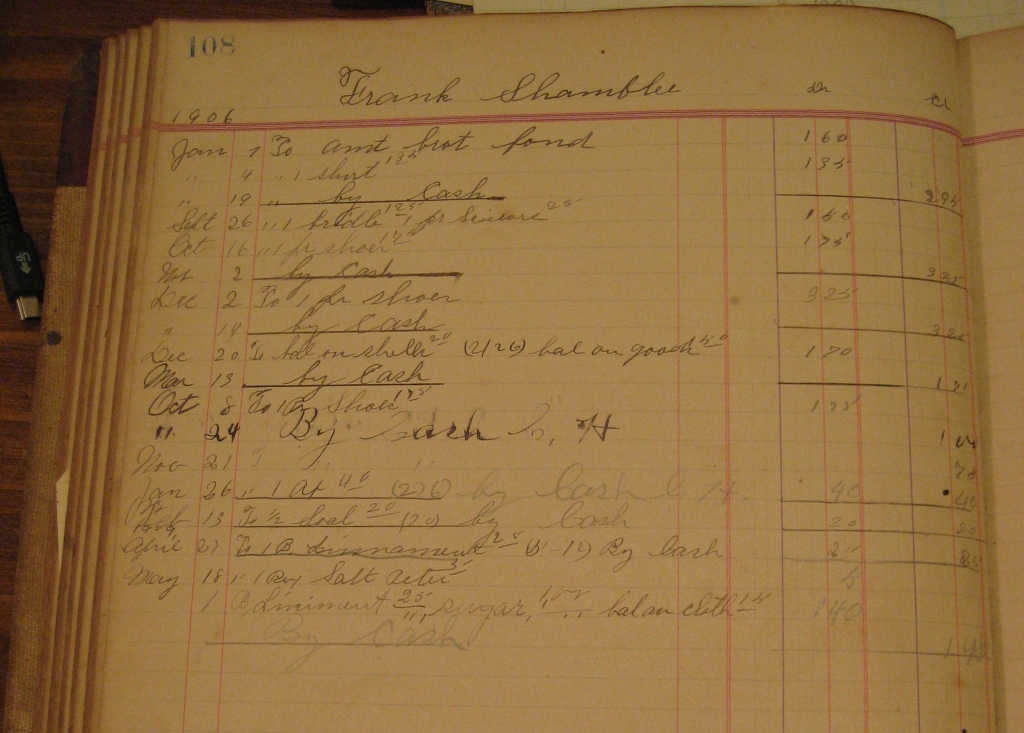 108
Frank Shamblee Dr Cr
1906
Jan 7 To amt brot fond 160
" 4 " 1 shirt 135 135
" 19 " by Cash 295
Sept 26 " 1 bridle 125 1 pr Scissors 25 150
Oct 16 " 1 pr shoes 175 175
Nov 2 by Cash 325
Dec 2 To 1 pr shoes 325
" 14 by Cash 325
Dec 20 To bal on shells 20 (2/26) bal on goods 150 170
Mar 13 by Cash
Oct 8 To 1 Pr Shoes 175 175
" 24 By Cash H 100
Nov 21 " " 75
Jan 26 " 1 Ax 40 by Cash H. 40 40
Feb 13 To 1/2 Soal 20 by Cash 20 20
April 27 To 1 B Linnament 25 By Cash 25
May 18 " 1 Box Salt Peter 5 5
1 B Liniment 25, sugar, 100 bal on cloth 15 140
By Cash